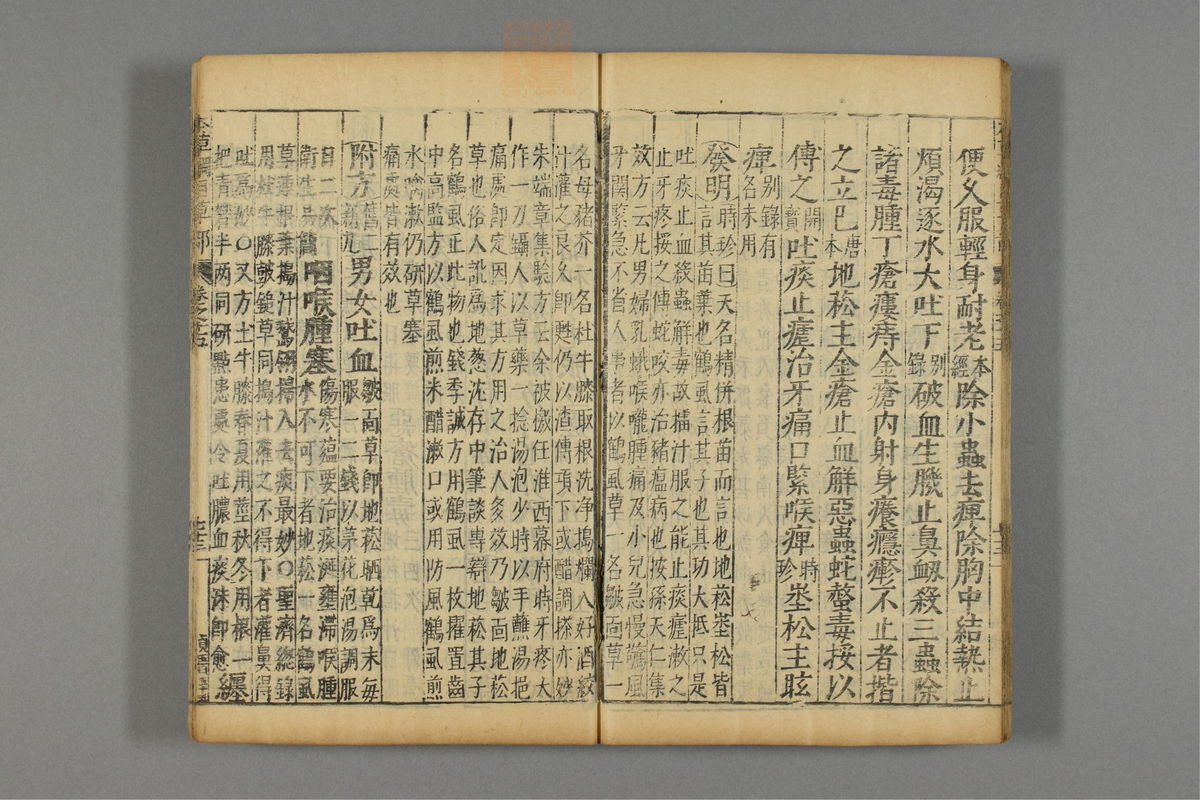 便久服輕身耐老本經除小蟲去痺除胸中結熱止
煩渴逐水大吐下别錄破血生肌止鼻衂殺三蟲除
諸毒腫丁瘡瘻痔金瘡内射身癢癮瘮不止者揩
之立巳唐本地菘主金瘡止血解惡蟲蛇螫毒挼以
傅之開寶吐痰止瘧治牙痛口緊喉痺時珍埊松主眩
痺别錄有名未用
發明時珍曰天名精併根苗而言也地菘埊松皆
言其苗葉也鶴虱言其子也其功大抵只是
吐痰止血殺蟲解毒故擂汁服之能止痰瘧漱之
止牙疼挼之傅蛇咬亦治豬瘟病也按孫天仁集
效方云凡男婦乳蛾喉嚨腫痛及小兒急慢驚風
牙關緊急不省人事者以鶴虱草一名皺面草一
名母豬芥一名杜牛膝取根洗净搗爛入好酒絞
汁灌之良久即甦仍以渣傅項下或醋調搽亦妙
朱端章集驗方云余被檄任淮西幕府時牙疼大
作一刀鑷人以草藥一捻湯泡少時以手蘸湯挹
痛處即定因求其方用之治人多效乃皺面地菘
草也俗人訛爲地葱沈存中筆談專辯地菘其子
名鶴虱正此物也錢季誠方用鶴虱一枚擢置齒
中高監方以鶴虱煎米醋漱口或用防風鶴虱煎
水噙漱仍研草塞
痛處皆有效也
附方舊二新九男女吐血皺面草即地菘晒乾爲末每
服一二錢以茅花泡湯調服
日二次
衛生易簡咽喉腫塞傷寒蘊要治痰涎壅滯喉腫
水不可下者地菘一名鶴虱
草連根葉搗汁鵞翎掃入去痰最妙〇聖濟總錄
用杜牛膝皷鎚草同搗汁灌之不得下者灌鼻得
吐爲妙〇又方土牛膝春夏用莖秋冬用根一
把青礬半两同研點患處令吐膿血痰沫即愈纏
本草綱目草部